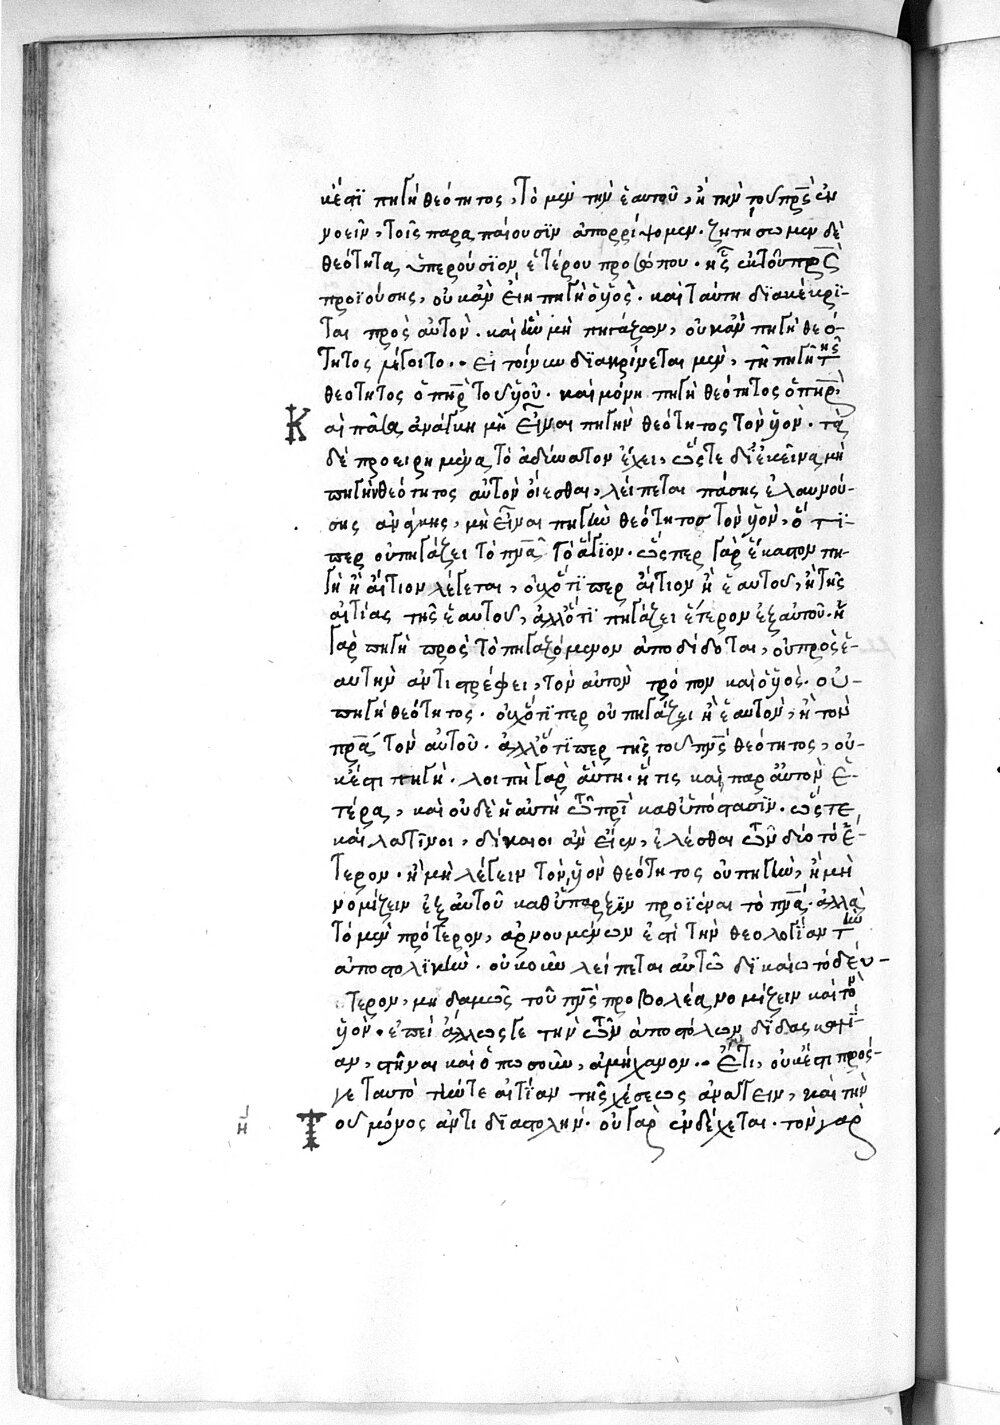 κέστι πηγὴ θεότητος, τὸ μὲν τὴν ἑαυτοῦ, ἢ τὴν τοῦ πρς ἐν
νοεῖν, τοῖς παραπαίουσϊν ἀπορρίψομεν. ζητήσωμεν δὲ
θεότητα ὑπερούσϊον ἑτέρου προσώπου. ἧς ἐκ τοῦ πρς
προϊούσης, οὐκ ἂν εἴη πηγὴ ὁ ϋἱὸς. καὶ ταύτη δϊακέκρϊ-
ται πρὸς αὐτὸν. καὶ μὴ πηγάζων, οὐκ ἂν πηγὴ θεό-
τητος λέγοιτο. εἰ τοίνυν δϊακρίνεται μὲν, τῆ πηγῆ τῆς
θεότητος ὁ πηρ τοῦ ϋἱοῦ. καὶ μόνη πηγὴ θεότητος ὁ πηρ.
Καὶ πᾶσα ἀνάγκη μὴ εἶναι πηγὴν θεότητος τὸν ϋἱὸν. τὰ
δὲ προειρημένα τὸ ἀδύνατον ἔχει, ὥστε δϊ ἐκεῖνα μὴ
πηγὴν θεότητος αὐτὸν οἴεσθαι, λείπεται πάσης ἐλαυνού-
σης ἀνάγκης, μὴ εἶναι πηγὴν θεότητος τὸν ϋἱὸν, ὅτϊ-
περ οὐ πηγάζει τὸ πνα τὸ ἅγϊον. ὥσπερ γὰρ ἕκαστον πη-
γὴ ἢ αἴτιον λέγεται, οὐχ ὅτϊπερ αἴτιον ἢ ἑαυτοῦ, ἢ τῆς
αἰτίας τῆς ἑαυτοῦ, ἀλλ ὅτϊ πηγάζει ἕτερον ἐξ αὐτοῦ. ἡ
γὰρ πηγὴ πρὸς τὸ πηγαζόμενον ἀποδίδοται, οὐ πρὸς ἑ-
αυτὴν ἀντιστρέφει, τὸν αὐτὸν τρόπον καὶ ὁ ϋἱὸς. οὐ
πηγὴ θεότητος. οὐχ ὅτϊπερ οὐ πηγάζει ἢ ἑαυτὸν, ἢ τὸν
πρα τὸν αὐτοῦ. ἀλλ ὅτϊπερ τῆς τοῦ πνς θεότητος, οὐ-
κέστι πηγὴ. λοιπὴ γὰρ αὕτη. ἥτις καὶ παρ αὐτὸν ἑ-
τέρα, καὶ οὐδὲ ἡ αὐτὴ τῶ πρϊ καθ ϋπόστασϊν. ὥστε
καὶ λατῖνοι, δίκαιοι ἂν εἶεν, ἑλέσθαι τῶν δύο τὸ ἕ-
τερον. ἢ μὴ λέγειν τὸν ϋἱὸν θεότητος οὐ πηγὴν, ἢ μὴ
νομίζειν ἐξ αὐτοῦ καθ ϋπαρξϊν προϊέναι τὸ πνα. ἀλλὰ
τὸ μὲν πρότερον, ἀρνουμένων ἐστὶ τὴν θεολογϊαν τὴν
ἀποστολϊκὴν. οὐκοῦν λείπεται αὐτῶ δϊκαίω τὸ δεύ-
τερον, μηδαμῶς τοῦ πνς προβολέα νομίζειν καὶ τὸν
ϋἱὸν. ἐπεὶ ἄλλως γε τὴν τῶν ἀποστόλων δϊδασκαλϊ-
αν, στῆναι καὶ ὁπωσοῦν, ἀμήχανον. Ἔτι, οὐκ ἔστι πρός
γε ταυτὸ τήν τε αἰτϊαν τῆς χέσεως ἀνάγειν, καὶ τὴν
η Τοῦ μόνος ἀντιδϊαστολὴν. οὐ γὰρ ἐνδέχεται. τὸν γὰρ